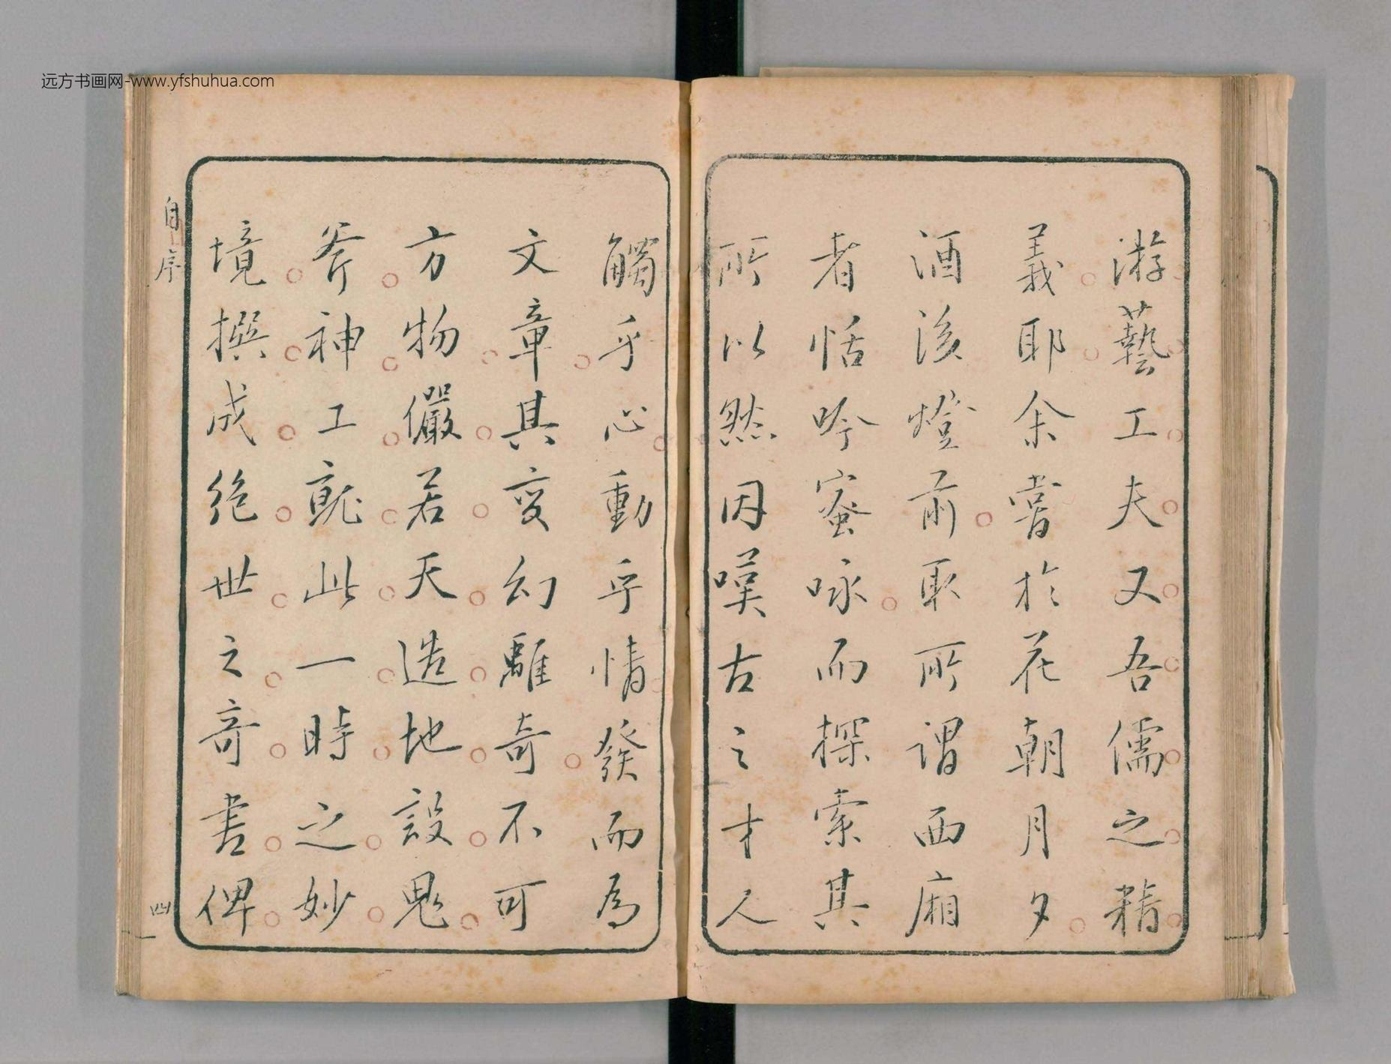 远方书画网-www.yfshuhua.com
游藝工夫又吾儒之精
義耶余嘗於花朝月夕
酒後燈前取所謂西廂
者恬吟蜜咏而探索其
所以然因嘆古之才人
觸乎心動乎情發而為
文章其變幻離奇不可
方物儼若天造地設鬼
斧神工就此一時之妙
境撰成絕世之奇書俾
自序
四